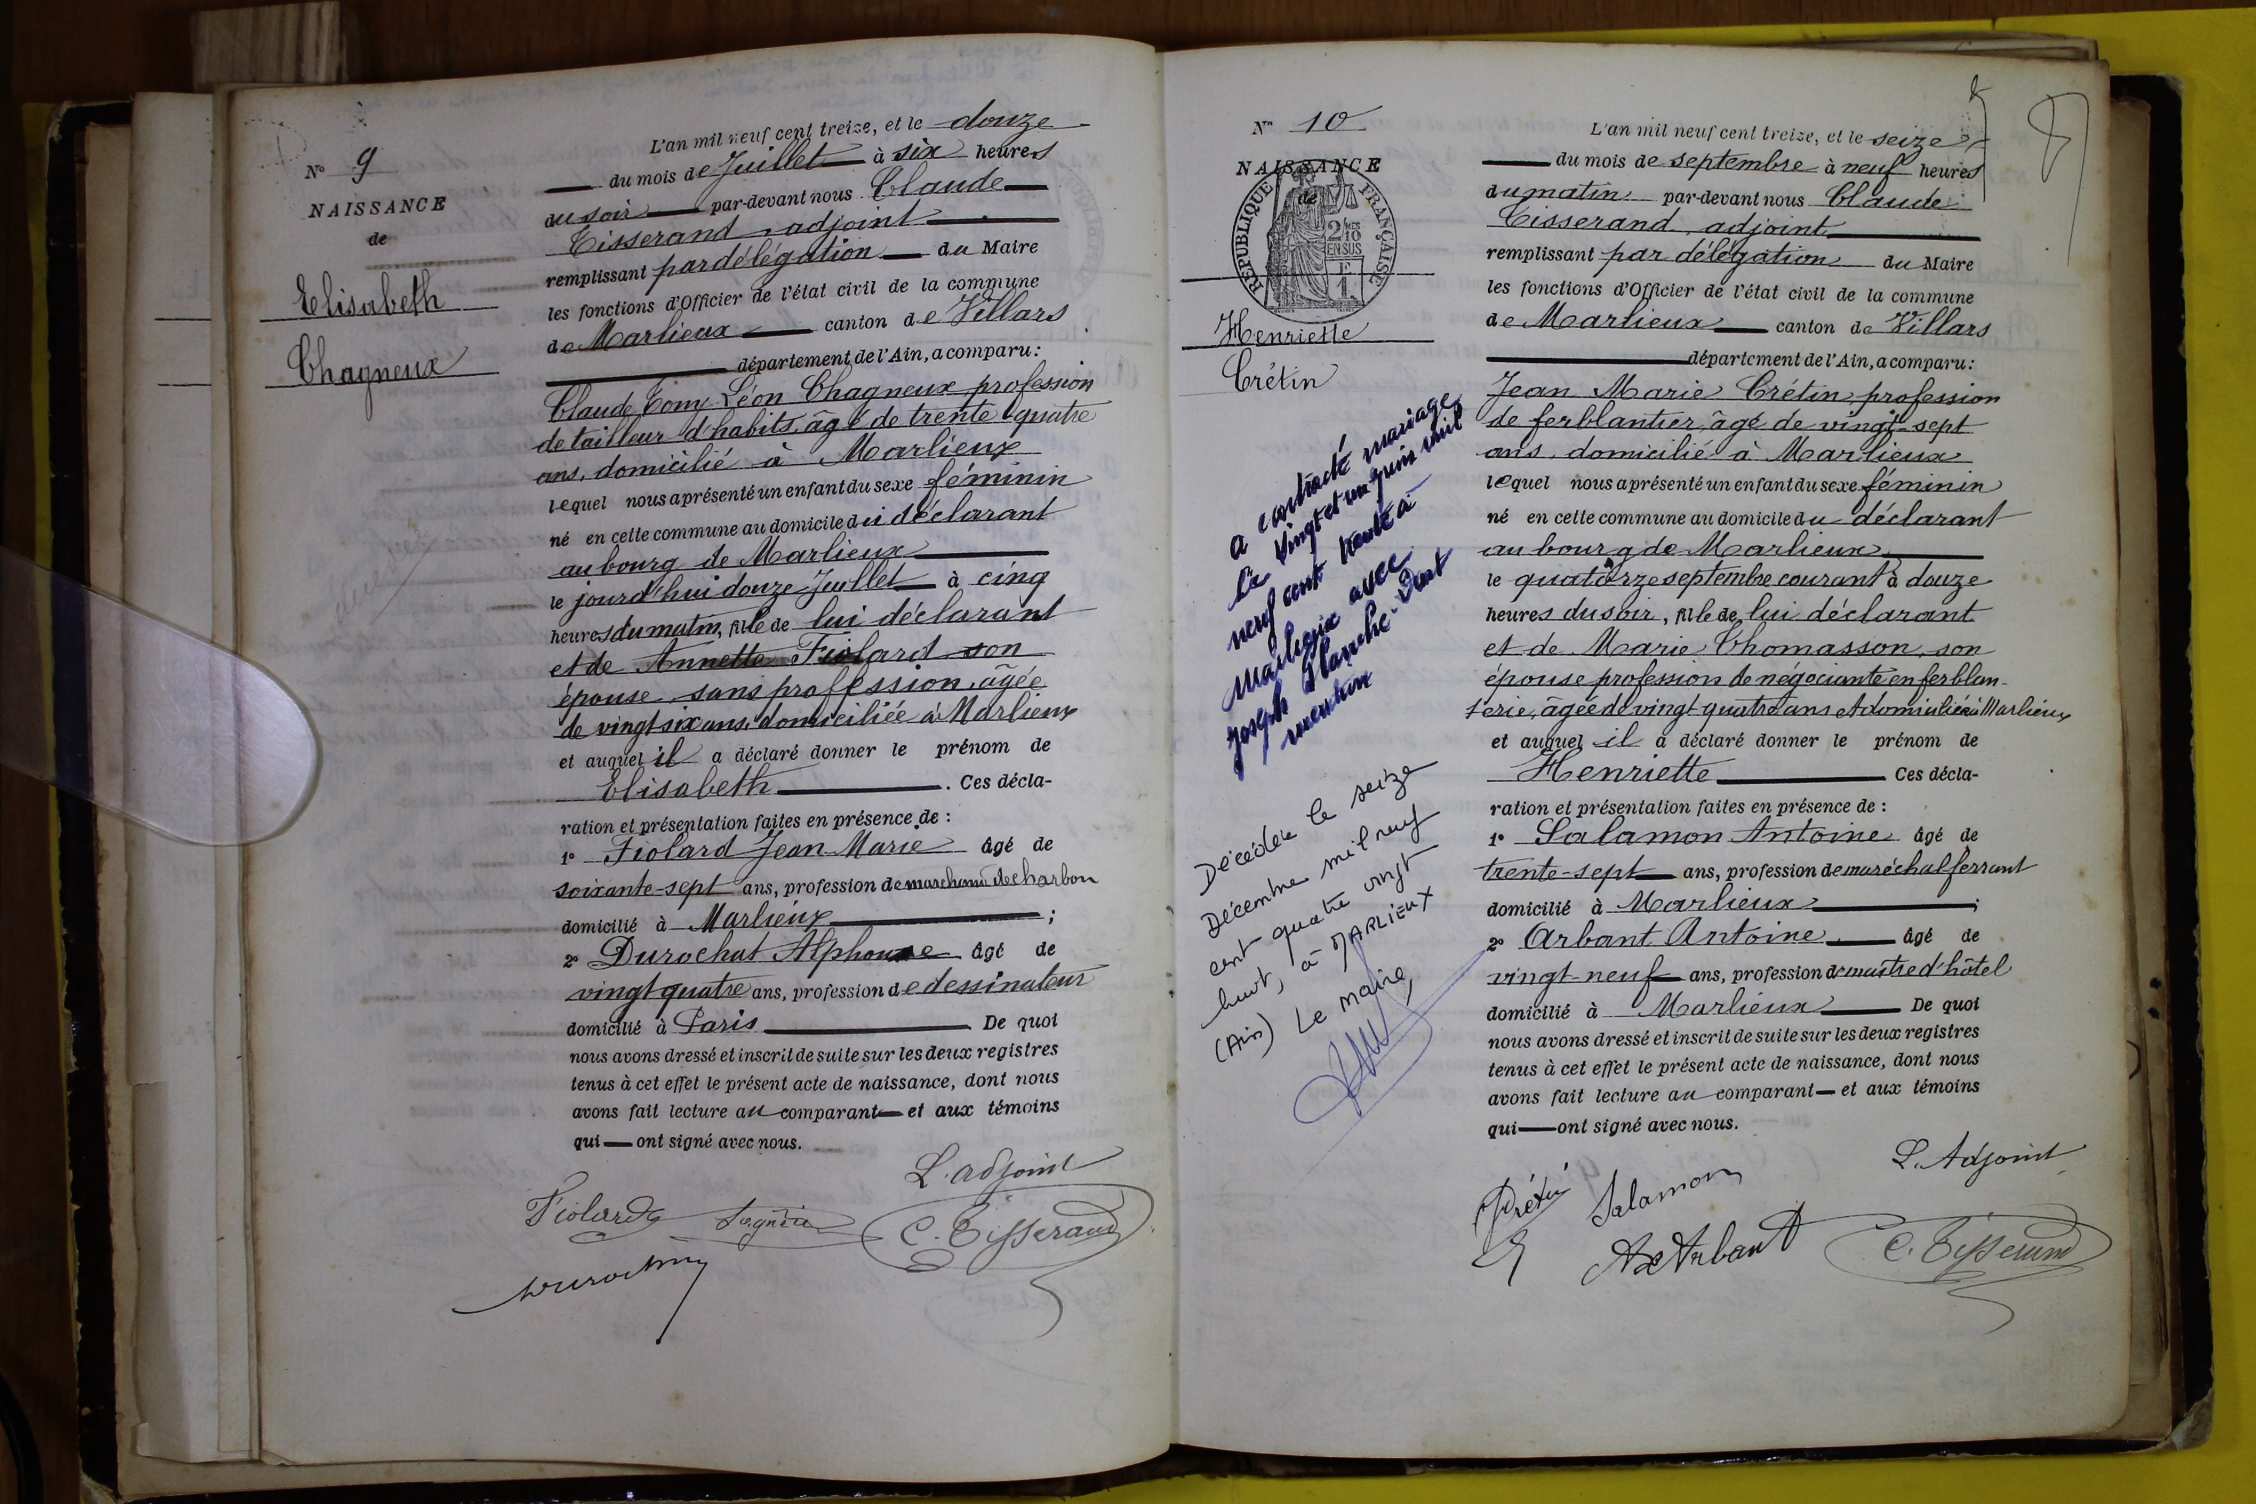 N° 9
NAISSANCE
de
Elisabeth
Chagneux
L'an mil neuf cent treize, et le douze
du mois de Juillet à six heures
du soir par-devant nous Claude
Tisserand, adjoint
remplissant par délégation du Maire
les fonctions d'Officier de l'état civil de la commune
de Marlieux canton de Villars
département de l'Ain, a comparu :
Claude Tony Léon Chagneux profession
de tailleur d'habits, âgé de trente quatre
ans, domicilié à Marlieux
lequel nous a présenté un enfant du sexe féminin
né en cette commune au domicile du déclarant
au bourg de Marlieux
le jourd'hui douze Juillet à cinq
heures du matin, fille de lui déclarant
et de Annette Fiolard son
épouse, sans profession, âgée
de vingt six ans, domiciliée à Marlieux
et auquel il a déclaré donner le prénom de
Elisabeth. Ces décla-
ration et présentation faites en présence de :
1° Fiolard Jean Marie âgé de
soixante-sept ans, profession de marchand de charbon
domicilié à Marlieux ;
2° Durochat Alphonse âgé de
vingt quatre ans, profession de dessinateur
domicilié à Paris De quoi
nous avons dressé et inscrit de suite sur les deux registres
tenus à cet effet le présent acte de naissance, dont nous
avons fait lecture au comparant et aux témoins
qui ont signé avec nous.
L'adjoint
Fiolard
C. Tisserand
N° 10
NAISSANCE
de
REPUBLIQUE FRANÇAISE
2/10MES
EN SUS
1F
Henriette
Crétin
a contracté mariage
le vingt et un juin mil
neuf cent trente à
Marlieux avec
Joseph Blanche
mention
Décédée le seize
Décembre mil neuf
cent quatre vingt
huit, à MARLIEUX
(Ain) Le maire,
L'an mil neuf cent treize, et le seize
du mois de septembre à neuf heures
du matin par-devant nous Claude
Tisserand, adjoint
remplissant par délégation du Maire
les fonctions d'Officier de l'état civil de la commune
de Marlieux canton de Villars
département de l'Ain, a comparu :
Jean Marie Crétin, profession
de ferblantier, âgé de vingt-sept
ans, domicilié à Marlieux
lequel nous a présenté un enfant du sexe féminin
né en cette commune au domicile du déclarant
au bourg de Marlieux
le quatorze septembre courant à douze
heures du soir, fille de lui déclarant
et de Marie Thomasson, son
épouse profession de négociante en ferblan-
terie, âgée de vingt-quatre ans et domiciliée à Marlieux
et auquel il a déclaré donner le prénom de
Henriette Ces décla-
ration et présentation faites en présence de :
1° Salamon Antoine âgé de
trente-sept ans, profession de maréchal ferrant
domicilié à Marlieux ;
2° Arbant Antoine âgé de
vingt-neuf ans, profession de maître d'hôtel
domicilié à Marlieux De quoi
nous avons dressé et inscrit de suite sur les deux registres
tenus à cet effet le présent acte de naissance, dont nous
avons fait lecture au comparant et aux témoins
qui ont signé avec nous.
L'Adjoint
Crétin Salamon
Arbant C. Tisserand